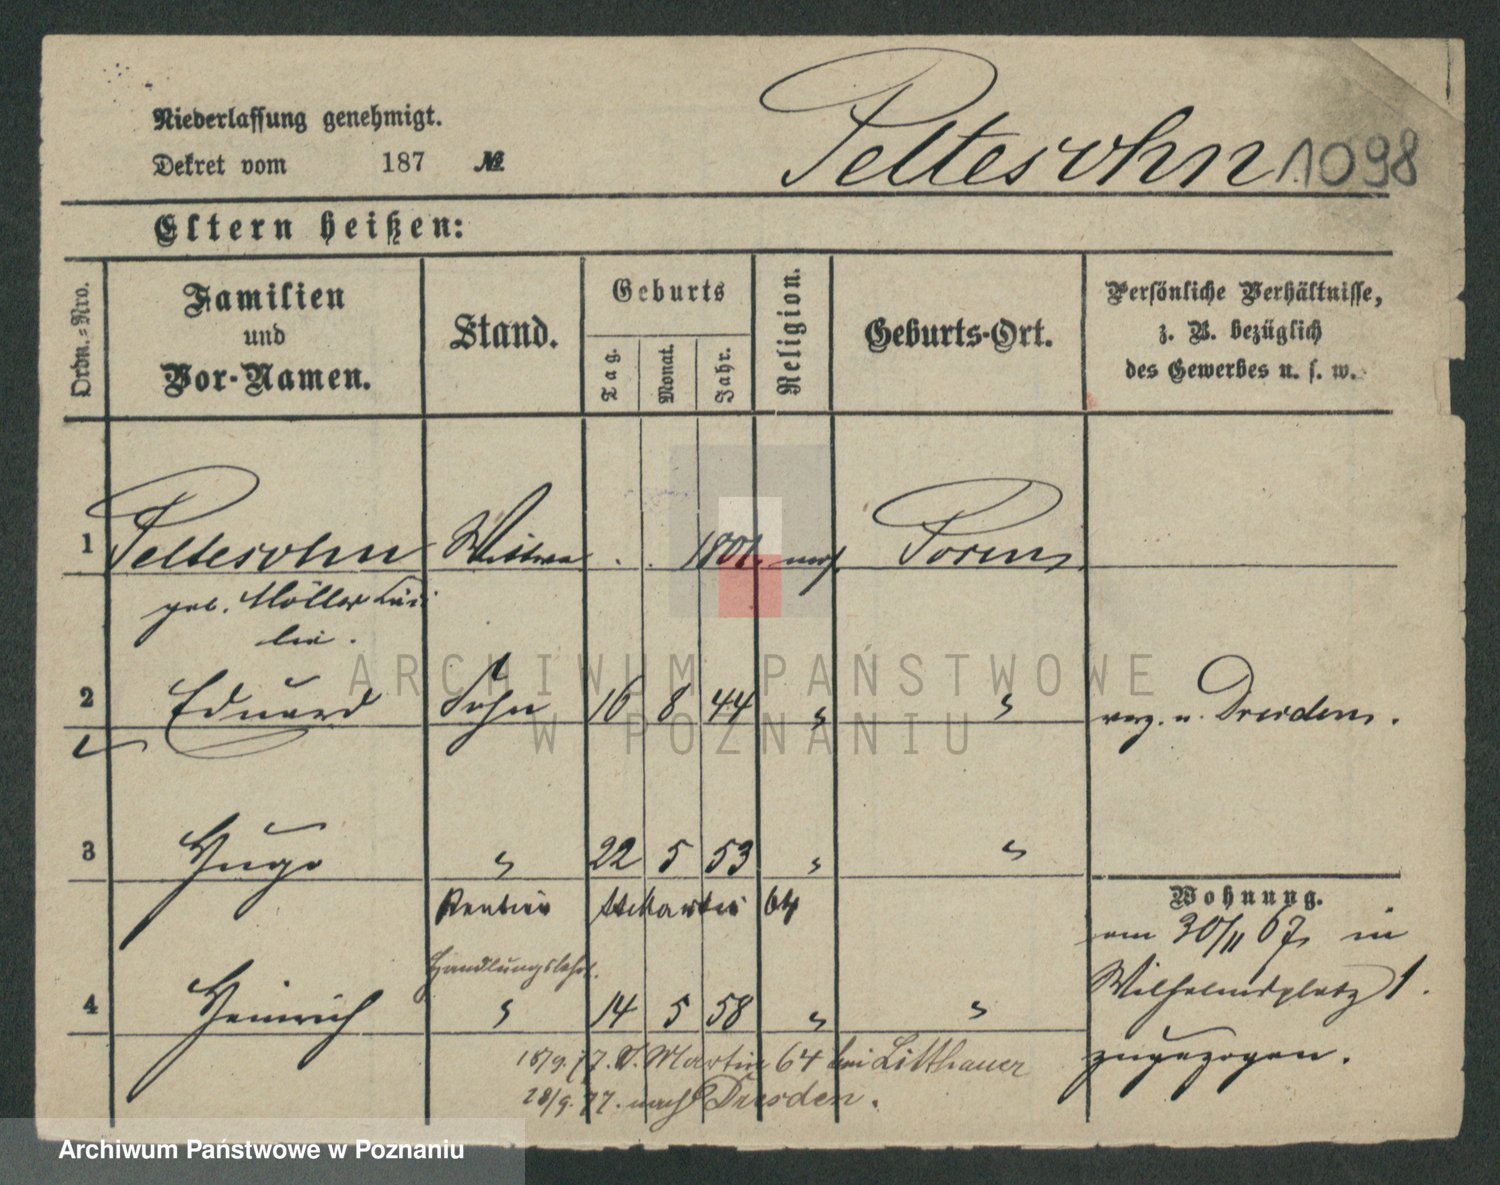 Niederlassung genehmigt.
Dekret vom 187 №
Peltesohn 1098
Eltern heißen:
Ordn.-Nro.
Familien und Vor-Namen.
Stand.
Geburts
Tag. Monat. Jahr.
Religion.
Geburts-Ort.
Persönliche Verhältnisse,
z. B. bezüglich
des Gewerbes u. s. w.
1 Peltesohn Wittwe 1801. mos. Posen
geb. Möller
2 Eduard Sohn 16 8 44 " " verz. n. Dresden.
3 Hugo " 22 5 53 " "
Rentier St Martin 64
Wohnung.
am 30/11 67 in
Wilhelmsplatz 1.
zugezogen.
Handlungslehrl.
4 Heinrich " 14 5 58 " "
18/9. 77. St. Martin 64 bei Litthauer
28/9. 77. nach Dresden.
ARCHIWUM PAŃSTWOWE
W POZNANIU
Archiwum Państwowe w Poznaniu